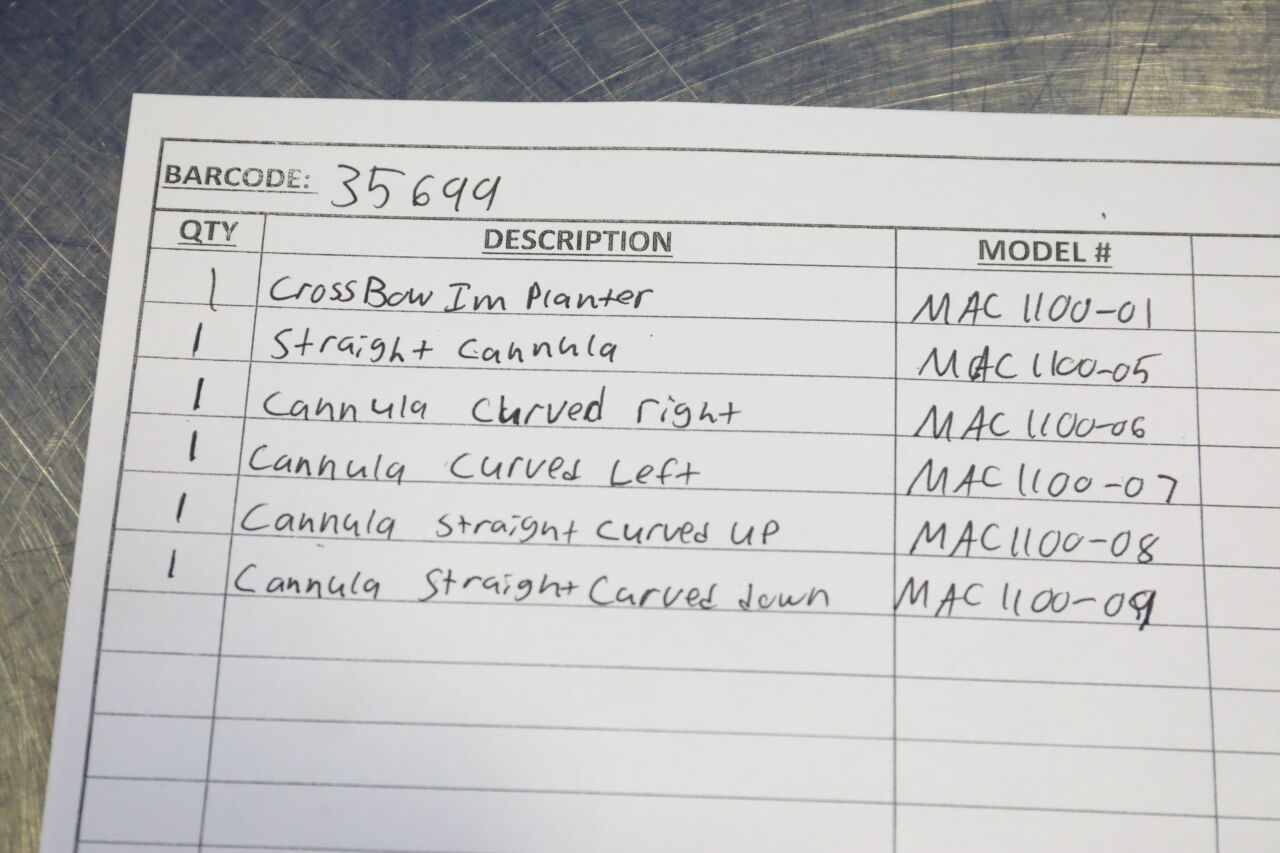 BARCODE: 35699
QTY DESCRIPTION MODEL #
1 CrossBow Implanter MAC 1100-01
1 Straight Cannula MAC 1100-05
1 Cannula Curved right MAC 1100-06
1 Cannula Curved Left MAC 1100-07
1 Cannula Straight Curved UP MAC 1100-08
1 Cannula Straight Curved down MAC 1100-09